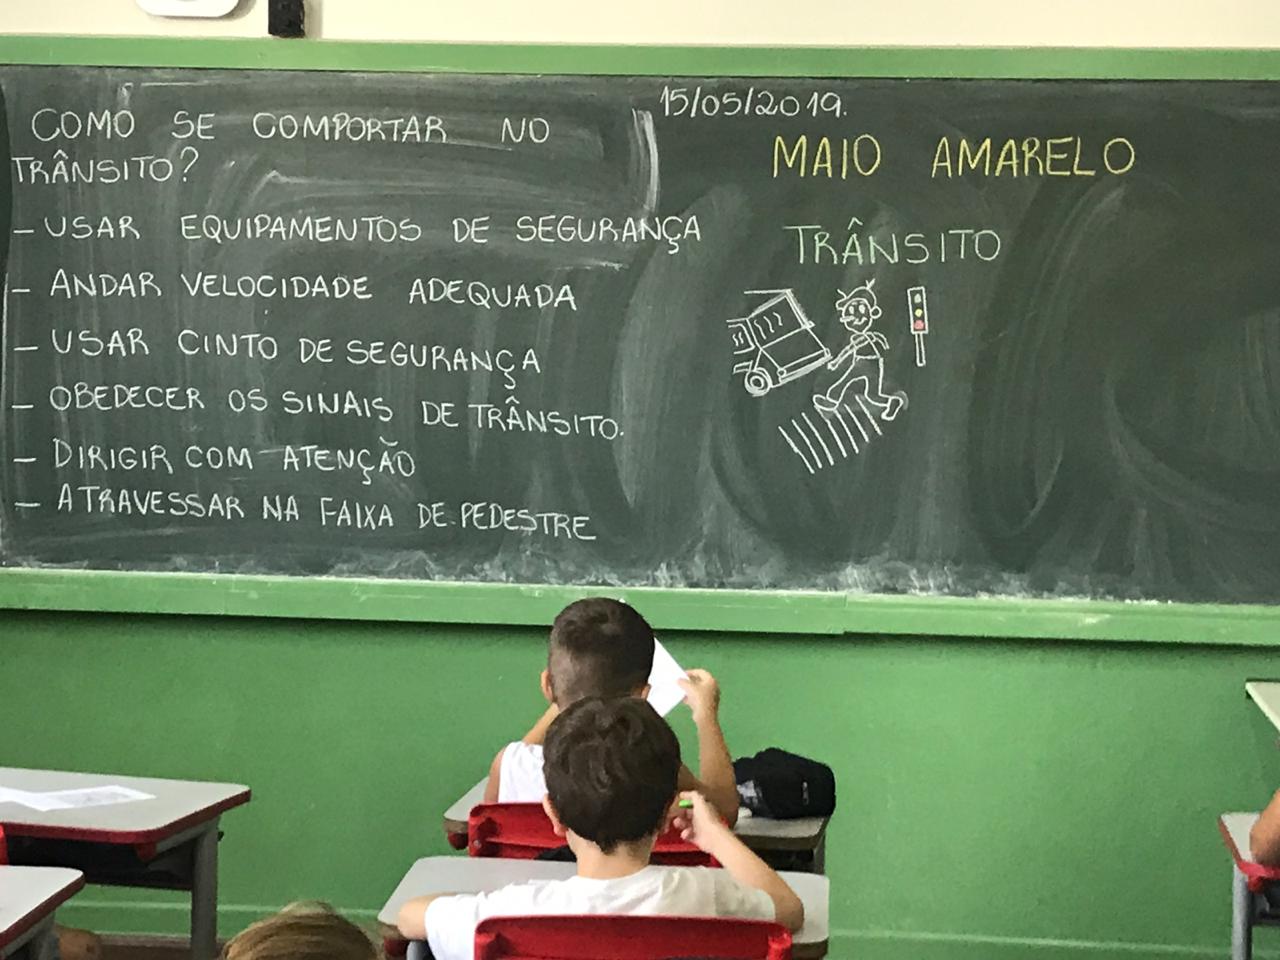 COMO SE COMPORTAR NO
TRÂNSITO?
- USAR EQUIPAMENTOS DE SEGURANÇA
- ANDAR VELOCIDADE ADEQUADA
- USAR CINTO DE SEGURANÇA
- OBEDECER OS SINAIS DE TRÂNSITO.
- DIRIGIR COM ATENÇÃO
- ATRAVESSAR NA FAIXA DE PEDESTRE
15/05/2019.
MAIO AMARELO
TRÂNSITO